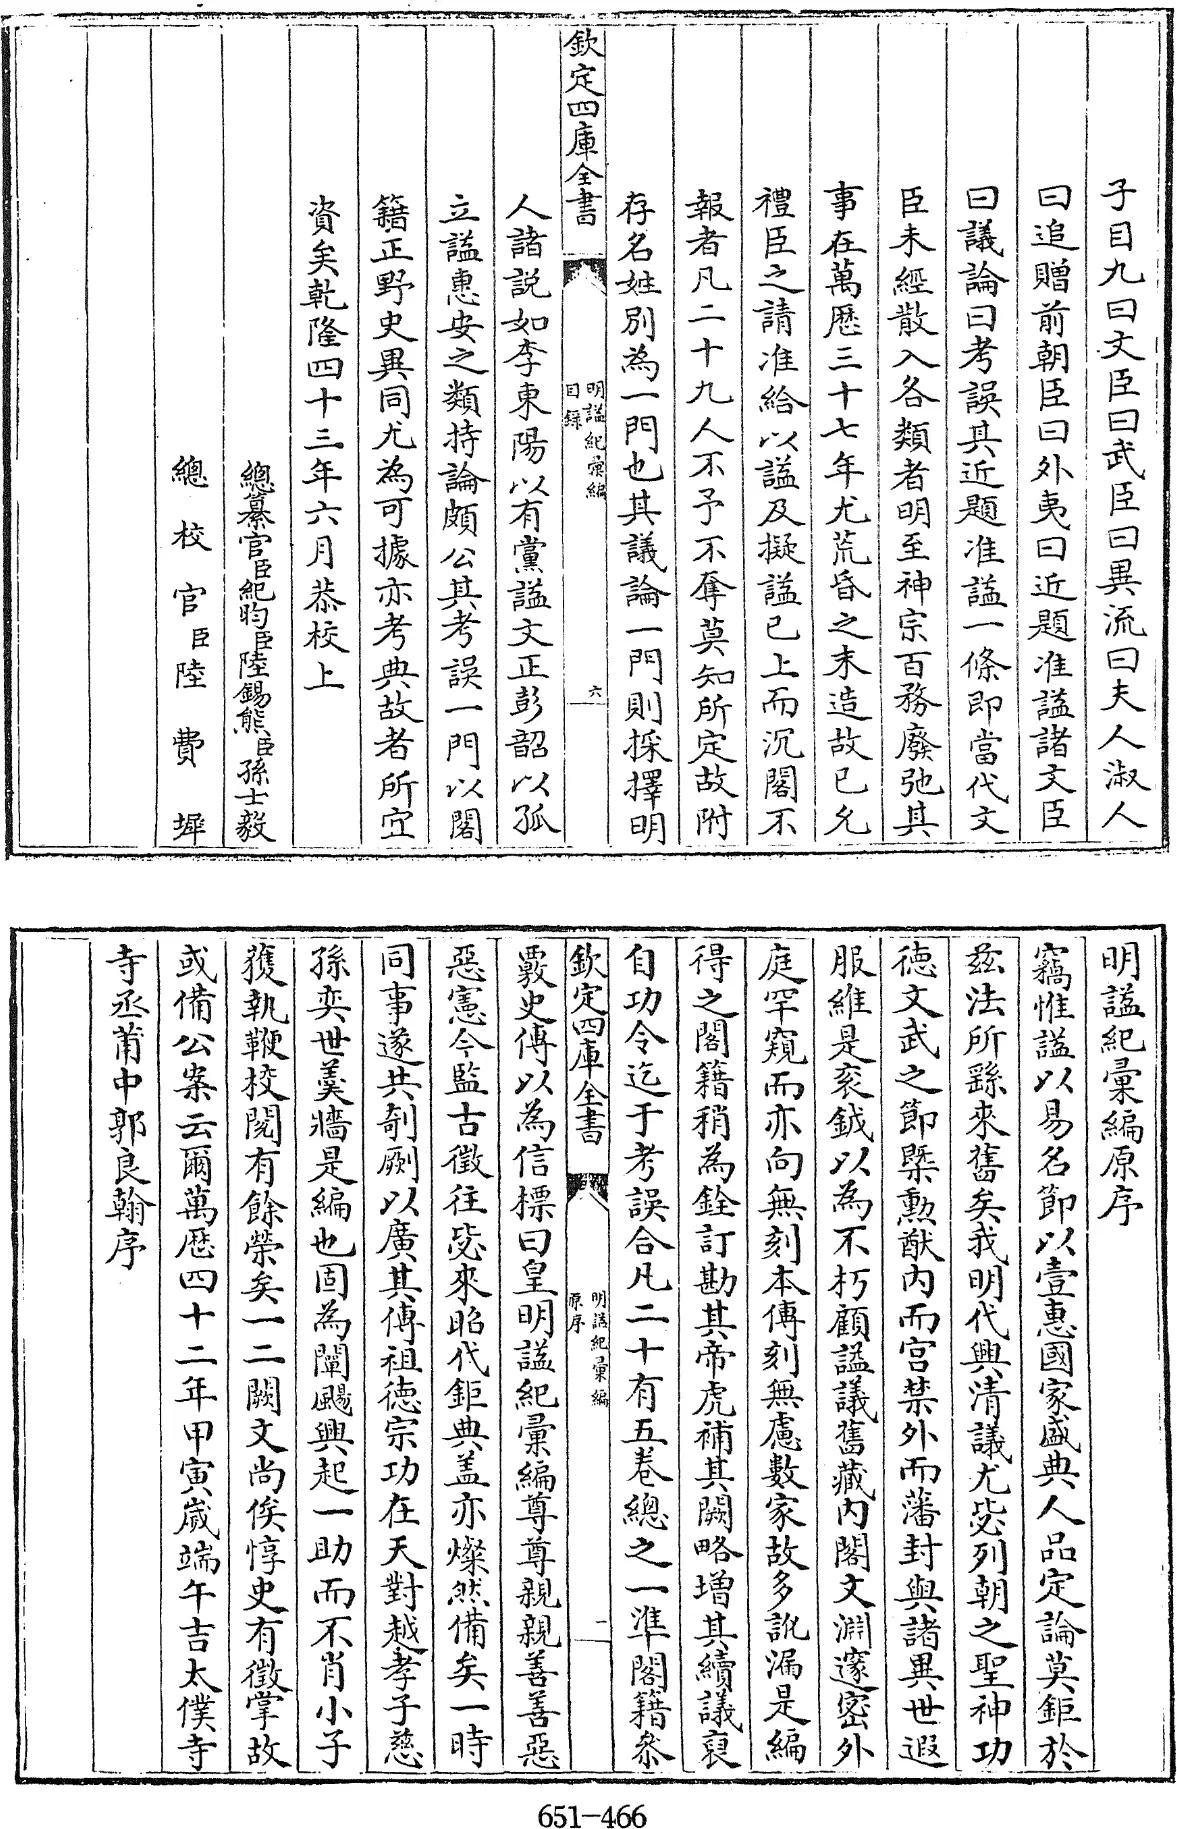 子目九曰文臣曰武臣曰異流曰夫人淑人
曰追贈前朝臣曰外夷曰近題准謚諸文臣
曰議論曰考誤其近題准謚一條即當代文
臣未經散入各類者明至神宗百務廢弛其
事在萬厯三十七年尤荒昏之末造故已允
禮臣之請准給以謚及擬謚已上而沉閣不
報者凡二十九人不予不奪莫知所定故附
存名姓別為一門也其議論一門則採擇明
欽定四庫全書
明謚紀彙編
目録
六
人諸説如李東陽以有黨謚文正彭韶以孤
立謚惠安之類持論頗公其考誤一門以閣
籍正野史異同尤為可據亦考典故者所宜
資矣乾隆四十三年六月恭校上
總纂官臣紀昀臣陸錫熊臣孫士毅
總校官臣陸費墀
明謚紀彙編原序
竊惟謚以易名節以壹惠國家盛典人品定論莫鉅於
茲法所繇來舊矣我明代興清議尤毖列朝之聖神功
德文武之節槩勲猷内而宫禁外而藩封與諸異世遐
服維是袞鉞以為不朽顧謚議舊藏内閣文淵邃密外
庭罕窺而亦向無刻本傳刻無慮數家故多訛漏是編
得之閣籍稍為銓訂勘其帝虎補其闕略増其續議裒
自功令迄于考誤合凡二十有五卷總之一準閣籍叅
欽定四庫全書
明謚紀彙編
原序
一
覈史傳以為信標曰皇明謚紀彙編尊尊親親善善惡
惡憲今監古徵往毖來昭代鉅典盖亦燦然備矣一時
同事遂共剞劂以廣其傳祖德宗功在天對越孝子慈
孫奕世羹牆是編也固為闡颺興起一助而不肖小子
獲執鞭校閲有餘榮矣一二闕文尚俟惇史有徵掌故
或備公案云爾萬厯四十二年甲寅嵗端午吉太僕寺
寺丞莆中郭良翰序
651-466